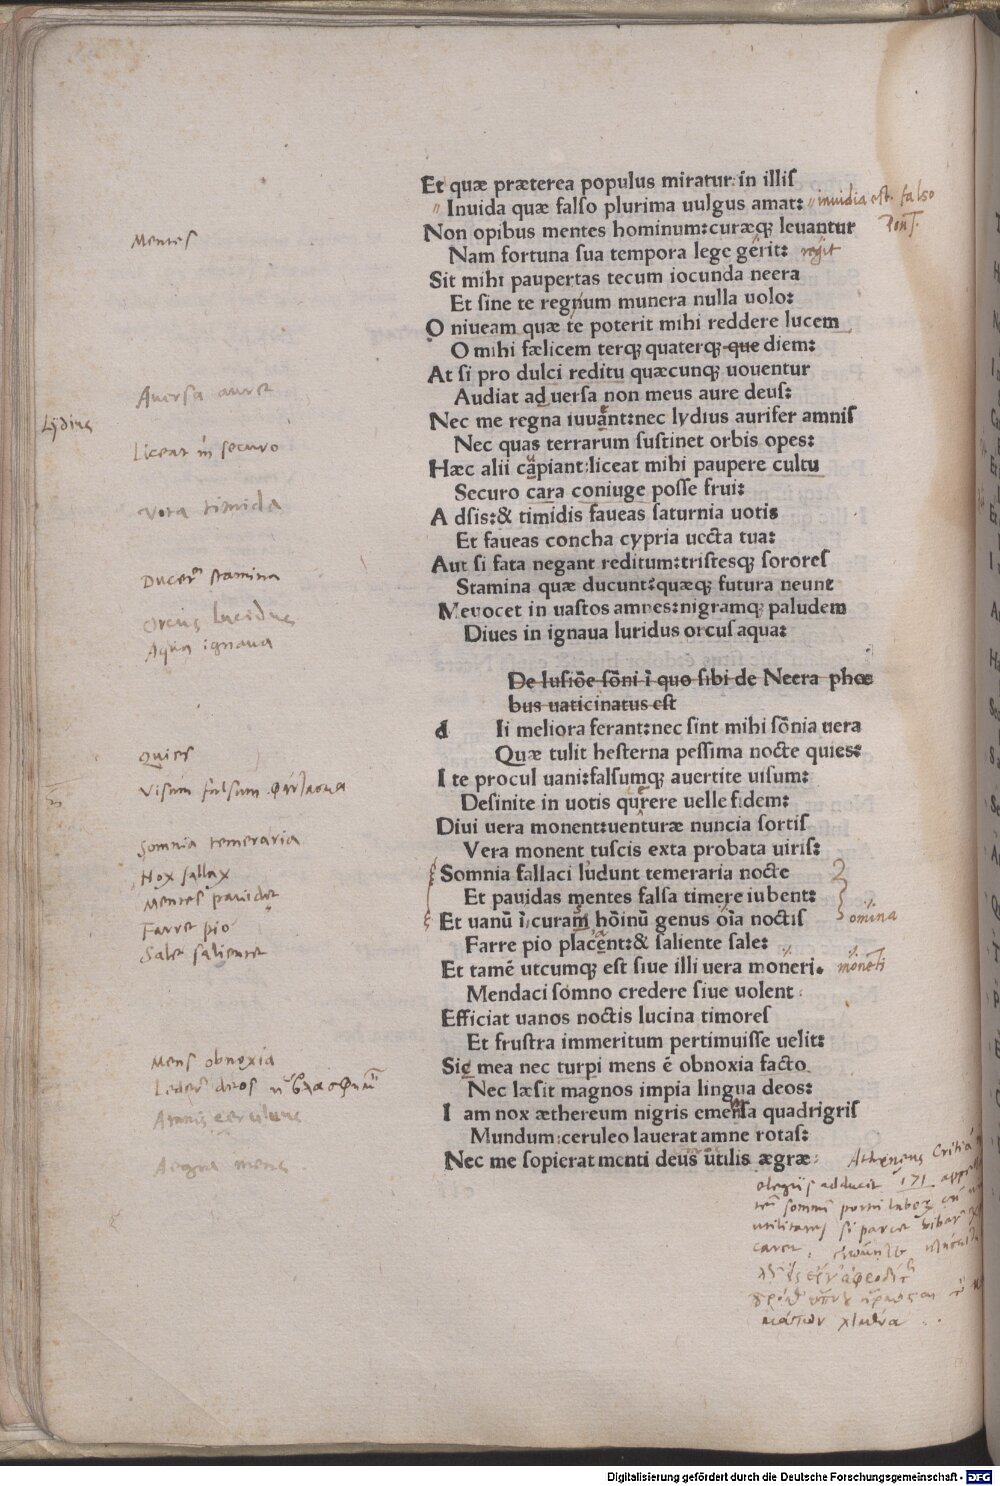 Et quæ præterea populus miratur: in illiſ
" Inuida quæ falſo plurima uulgus amat: " inuidia est. falso
Pont.
Non opibus mentes hominum: curæqꝫ leuantur
Mentes
Nam fortuna ſua tempora lege gerit: regit
Sit mihi paupertas tecum iocunda neera
Et ſine te regnum munera nulla uolo:
O niueam quæ te poterit mihi reddere lucem
O mihi fælicem terqꝫ quaterqꝫ que diem:
At ſi pro dulci reditu quæcunqꝫ uouentur
Audiat aduerſa non meus aure deus:
Aversa aure
Nec me regna iuuant: nec lydius aurifer amniſ
Lydius
Nec quas terrarum ſuſtinet orbis opes:
Liceat in securo
Hæc alii capiant: liceat mihi paupere cultu
Securo cara coniuge poſſe frui:
A dſis: & timidis faueas ſaturnia uotis
Vota timida
Et faueas concha cypria uecta tua:
Aut ſi fata negant reditum: triſtesqꝫ ſororeſ
Stamina quæ ducunt: quæqꝫ futura neunt
Ducere stamina
Mevocet in uaſtos amnes: nigramqꝫ paludem
Orcus luridus
Diues in ignaua luridus orcuſ aqua:
Aqua ignava
De luſiōe ſōni ī quo ſibi de Neera phœ
bus uaticinatus eſt
d Ii meliora ferant: nec ſint mihi ſōnia uera
Quæ tulit heſterna peſſima nocte quies:
Quies
I te procul uani: falſumqꝫ auertite uiſum:
Visum falsum
Deſinite in uotis qurere uelle fidem:
Diui uera monent: uenturæ nuncia ſortiſ
Somnia temeraria
Vera monent tuſcis exta probata uiriſ:
Somnia fallaci ludunt temeraria nocte
Nox fallax
Et pauidas mentes falſa timere iubent:
Mentes pavidae
Et uanū ī curam hōinū genus oīa noctiſ omina
Farre pio
Farre pio placent: & ſaliente ſale:
Sale saliente
Et tamē utcumqꝫ eſt ſiue illi uera moneri. moneti
Mendaci ſomno credere ſiue uolent:
Efficiat uanos noctis lucina timoreſ
Et fruſtra immeritum pertimuiſſe uelit:
Mens obnoxia
Sic mea nec turpi mens ē obnoxia facto
Nec læſit magnos impia lingua deos:
I am nox æthereum nigris emerſa quadrigriſ
Amnis ceruleus
Mundum: ceruleo lauerat amne rotaſ:
Nec me ſopierat menti deus utilis ægræ:
Aegra mens
Atheneus
elegiis adducit 171
Digitalisierung gefördert durch die Deutsche Forschungsgemeinschaft - DFG